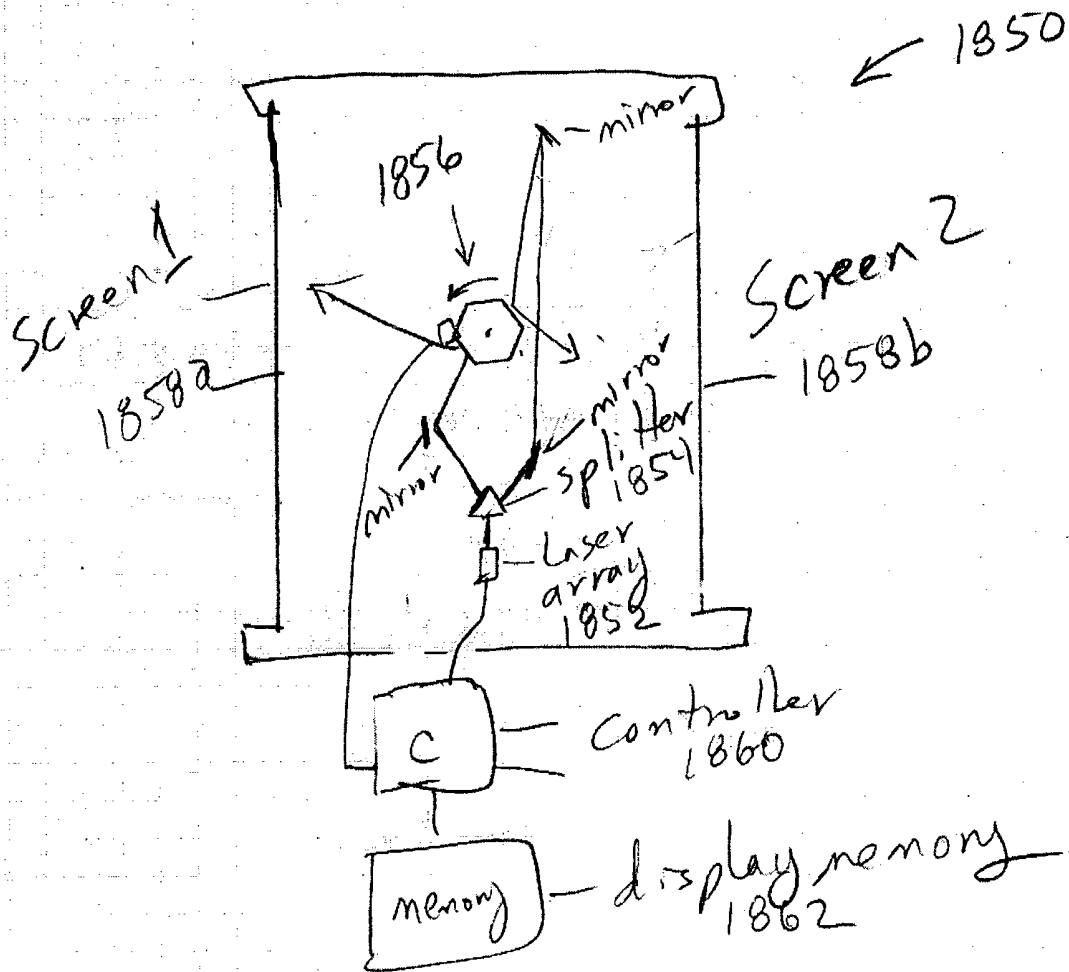 1850
mirror
1856
Screen 1
1858a
Screen 2
1858b
mirror
mirror
splitter
1854
Laser
array
1852
C
Controller
1860
memory
display memory
1862